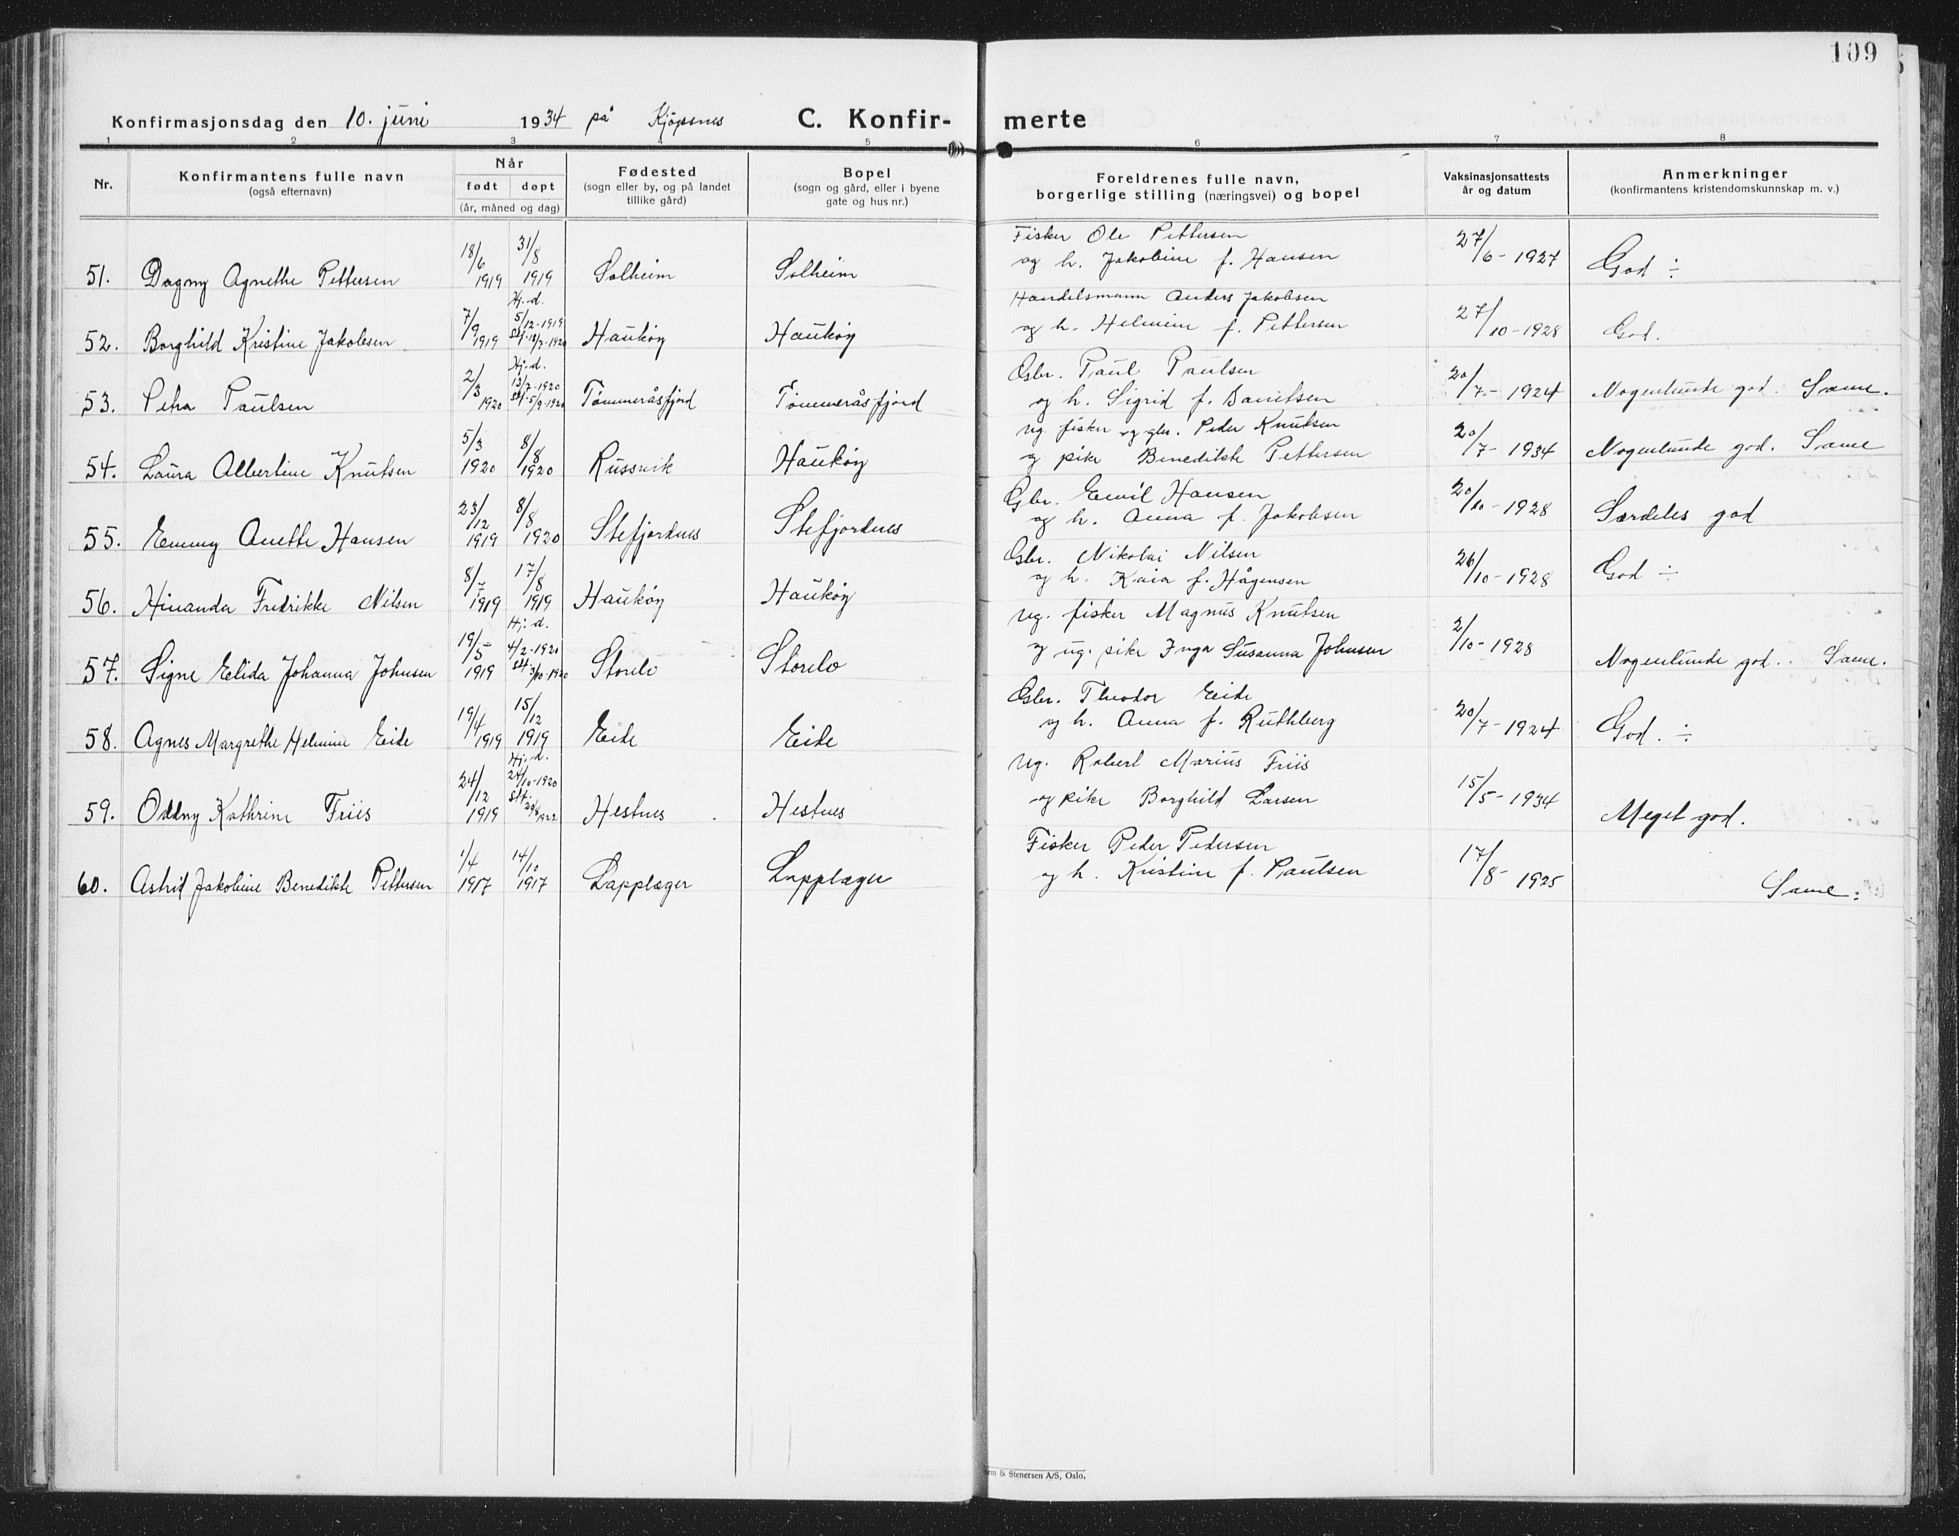 109
Konfirmasjonsdag den 10. juni 1934 på Kjöpsnes C. Konfir- merte
1 2 3 4 5 6 7 8
Nr. Konfirmantens fulle navn (også efternavn) Når født døpt (år, måned og dag) Fødested (sogn eller by, og på landet tillike gård) Bopel (sogn og gård, eller i byene gate og hus nr.) Foreldrenes fulle navn, borgerlige stilling (næringsvei) og bopel Vaksinasjonsattests år og datum Anmerkninger (konfirmantens kristendomskunnskap m. v.)
51. Dagny Agnethe Pettersen 18/6 1919 31/8 1919 Solheim Solheim Fisker Ole Pettersen og h. Jakobine f. Hansen 27/6-1927 God ÷
52. Borghild Kristine Jakobsen 7/9 1919 Hj.d. 5/12-1919 Haukøy Haukøy Handelsmann Anders Jakobsen og h. Helmine f. Pettersen 27/10-1928 God.
53. Petra Paulsen 2/3 1920 Hj.d. 13/7-1920 st. 5/9-1920 Tømmeråsfjord Tømmeråsfjord Gbr. Paul Paulsen og h. Sigrid f. Danielsen 20/7-1924 Nogenlunde god. Same.
54. Laura Albertine Knutsen 5/3 1920 8/8 1920 Russvik Haukøy Ug. fisker og gbr. Peder Knutsen og pike Benedikte Pettersen 20/7-1934 Nogenlunde god. Same
55. Emmy Anette Hansen 23/12 1919 8/8 1920 Stefjordnes Stefjordnes Gbr. Emil Hansen og h. Anna f. Jakobsen 20/10-1928 Særdeles god
56. Hinanda Fredrikke Nilsen 8/7 1919 17/8 1919 Haukøy Haukøy Gbr. Nikolai Nilsen og h. Kaia f. Hågensen 26/10-1928 God ÷
57. Signe Elida Johanna Johnsen 19/5 1919 Hj.d. 4/2-1920 st. 3/10-1920 Storelv Storelv Ug. fisker Magnus Knutsen og ug. pike Inga Susanna Johnsen 2/10-1928 Nogenlunde god. Same.
58. Agnes Margrethe Helmine Eide 19/4 1919 15/12 1919 Eide Eide Gbr. Theodor Eide og h. Anna f. Ruthberg 20/7-1924 God. ÷
59. Oddny Kathrine Friis 24/12 1919 Hj.d. 24/10-1920 Hestnes Hestnes Ug. Robert Marius Friis og pike Borghild Larsen 15/5-1934 Meget god.
60. Astrid Jakobine Benedikte Pettersen 1/4 1917 14/10 1917 Lapplæger Lapplæger Fisker Peder Pedersen og h. Kristine f. Paulsen 17/8-1925 Same.
& Stenersen A/S, Oslo.